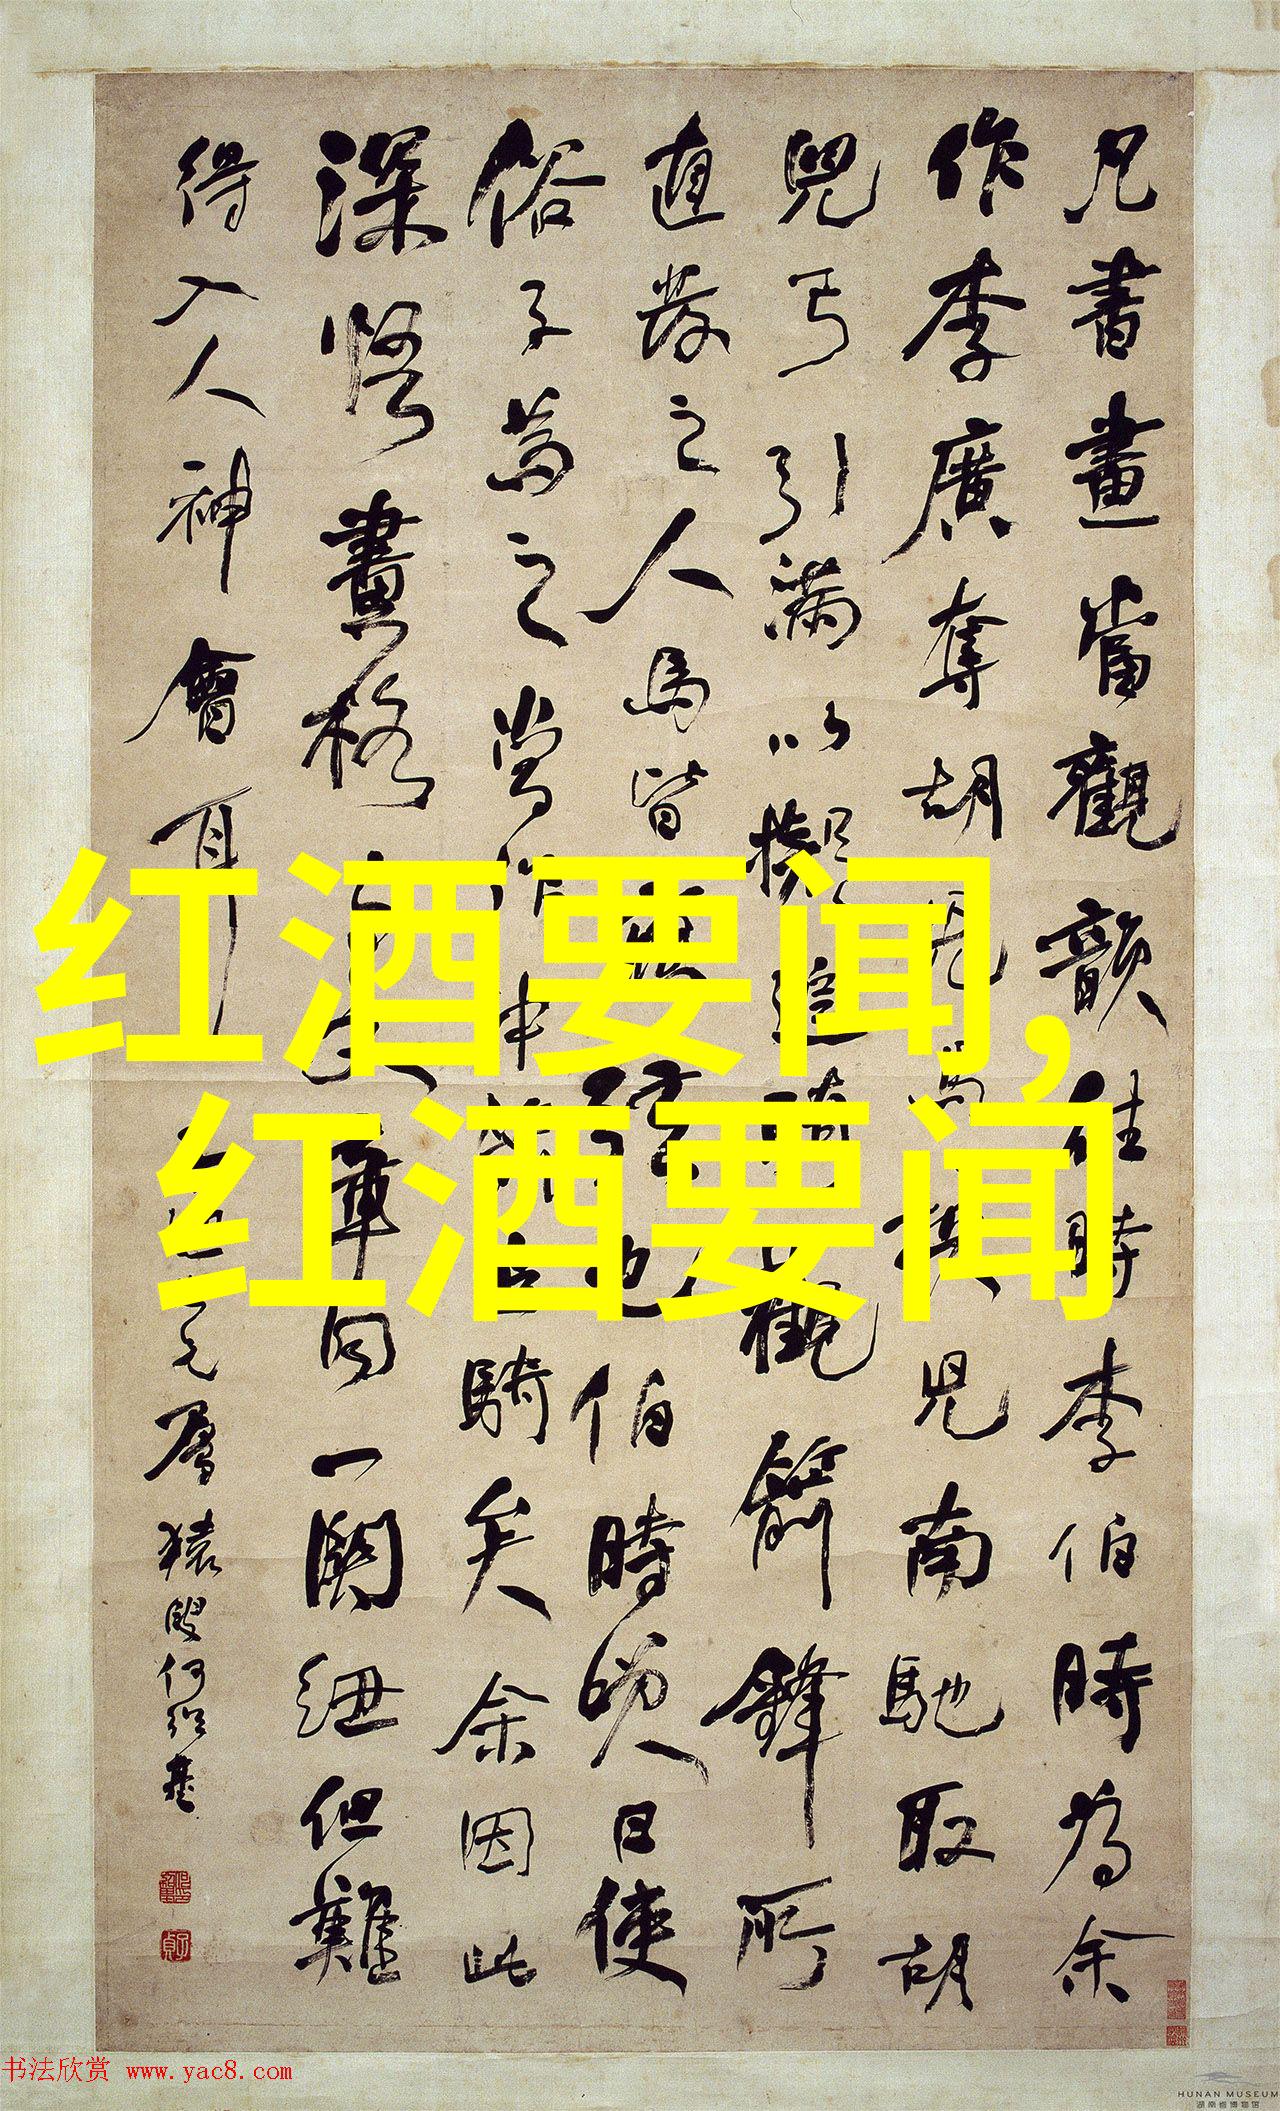 凡書畫當觀韻往時李伯時為余
作李廣奪胡兒馬挾兒南馳取胡
兒弓引滿以擬追騎觀箭鋒所
直發之人馬皆應弦也伯時笑曰使
俗子為之當作中箭追騎矣余因此
深悟畫格與文章同一關紐但難
得入人神會耳
猿叟何紹基
红酒要闻,
红酒要闻
书法欣赏 www.yac8.com
HUNAN MUSEUM
湖南省博物馆